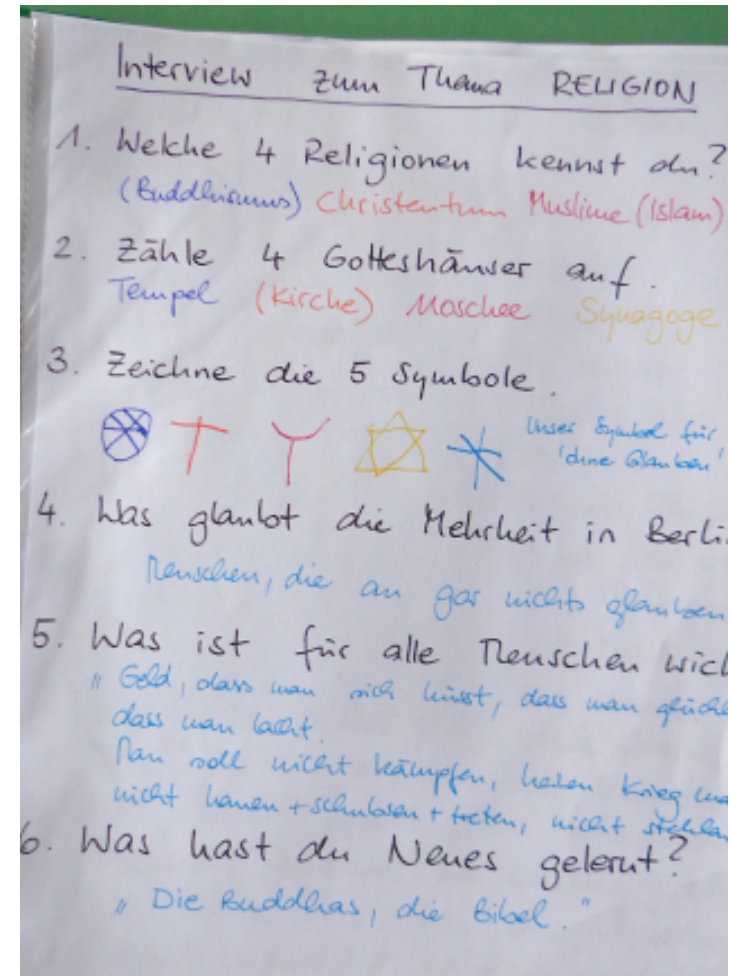 Interview zum Thema RELIGION
1. Welche 4 Religionen kennst du?
(Buddhismus) Christentum Muslime (Islam)
2. Zähle 4 Gotteshäuser auf.
Tempel (Kirche) Moschee Synagoge
3. Zeichne die 5 Symbole.
Unser Symbol für
'ohne Glauben'
4. Was glaubt die Mehrheit in Berli
Menschen, die an gar nichts glauben
5. Was ist für alle Menschen wich
"Geld, dass man sich küsst, dass man glückl
dass man lacht.
Man soll nicht kämpfen, keinen Krieg ma
nicht hauen + schubsen + treten, nicht stehlen
6. Was hast du Neues gelernt?
"Die Buddhas, die Bibel."